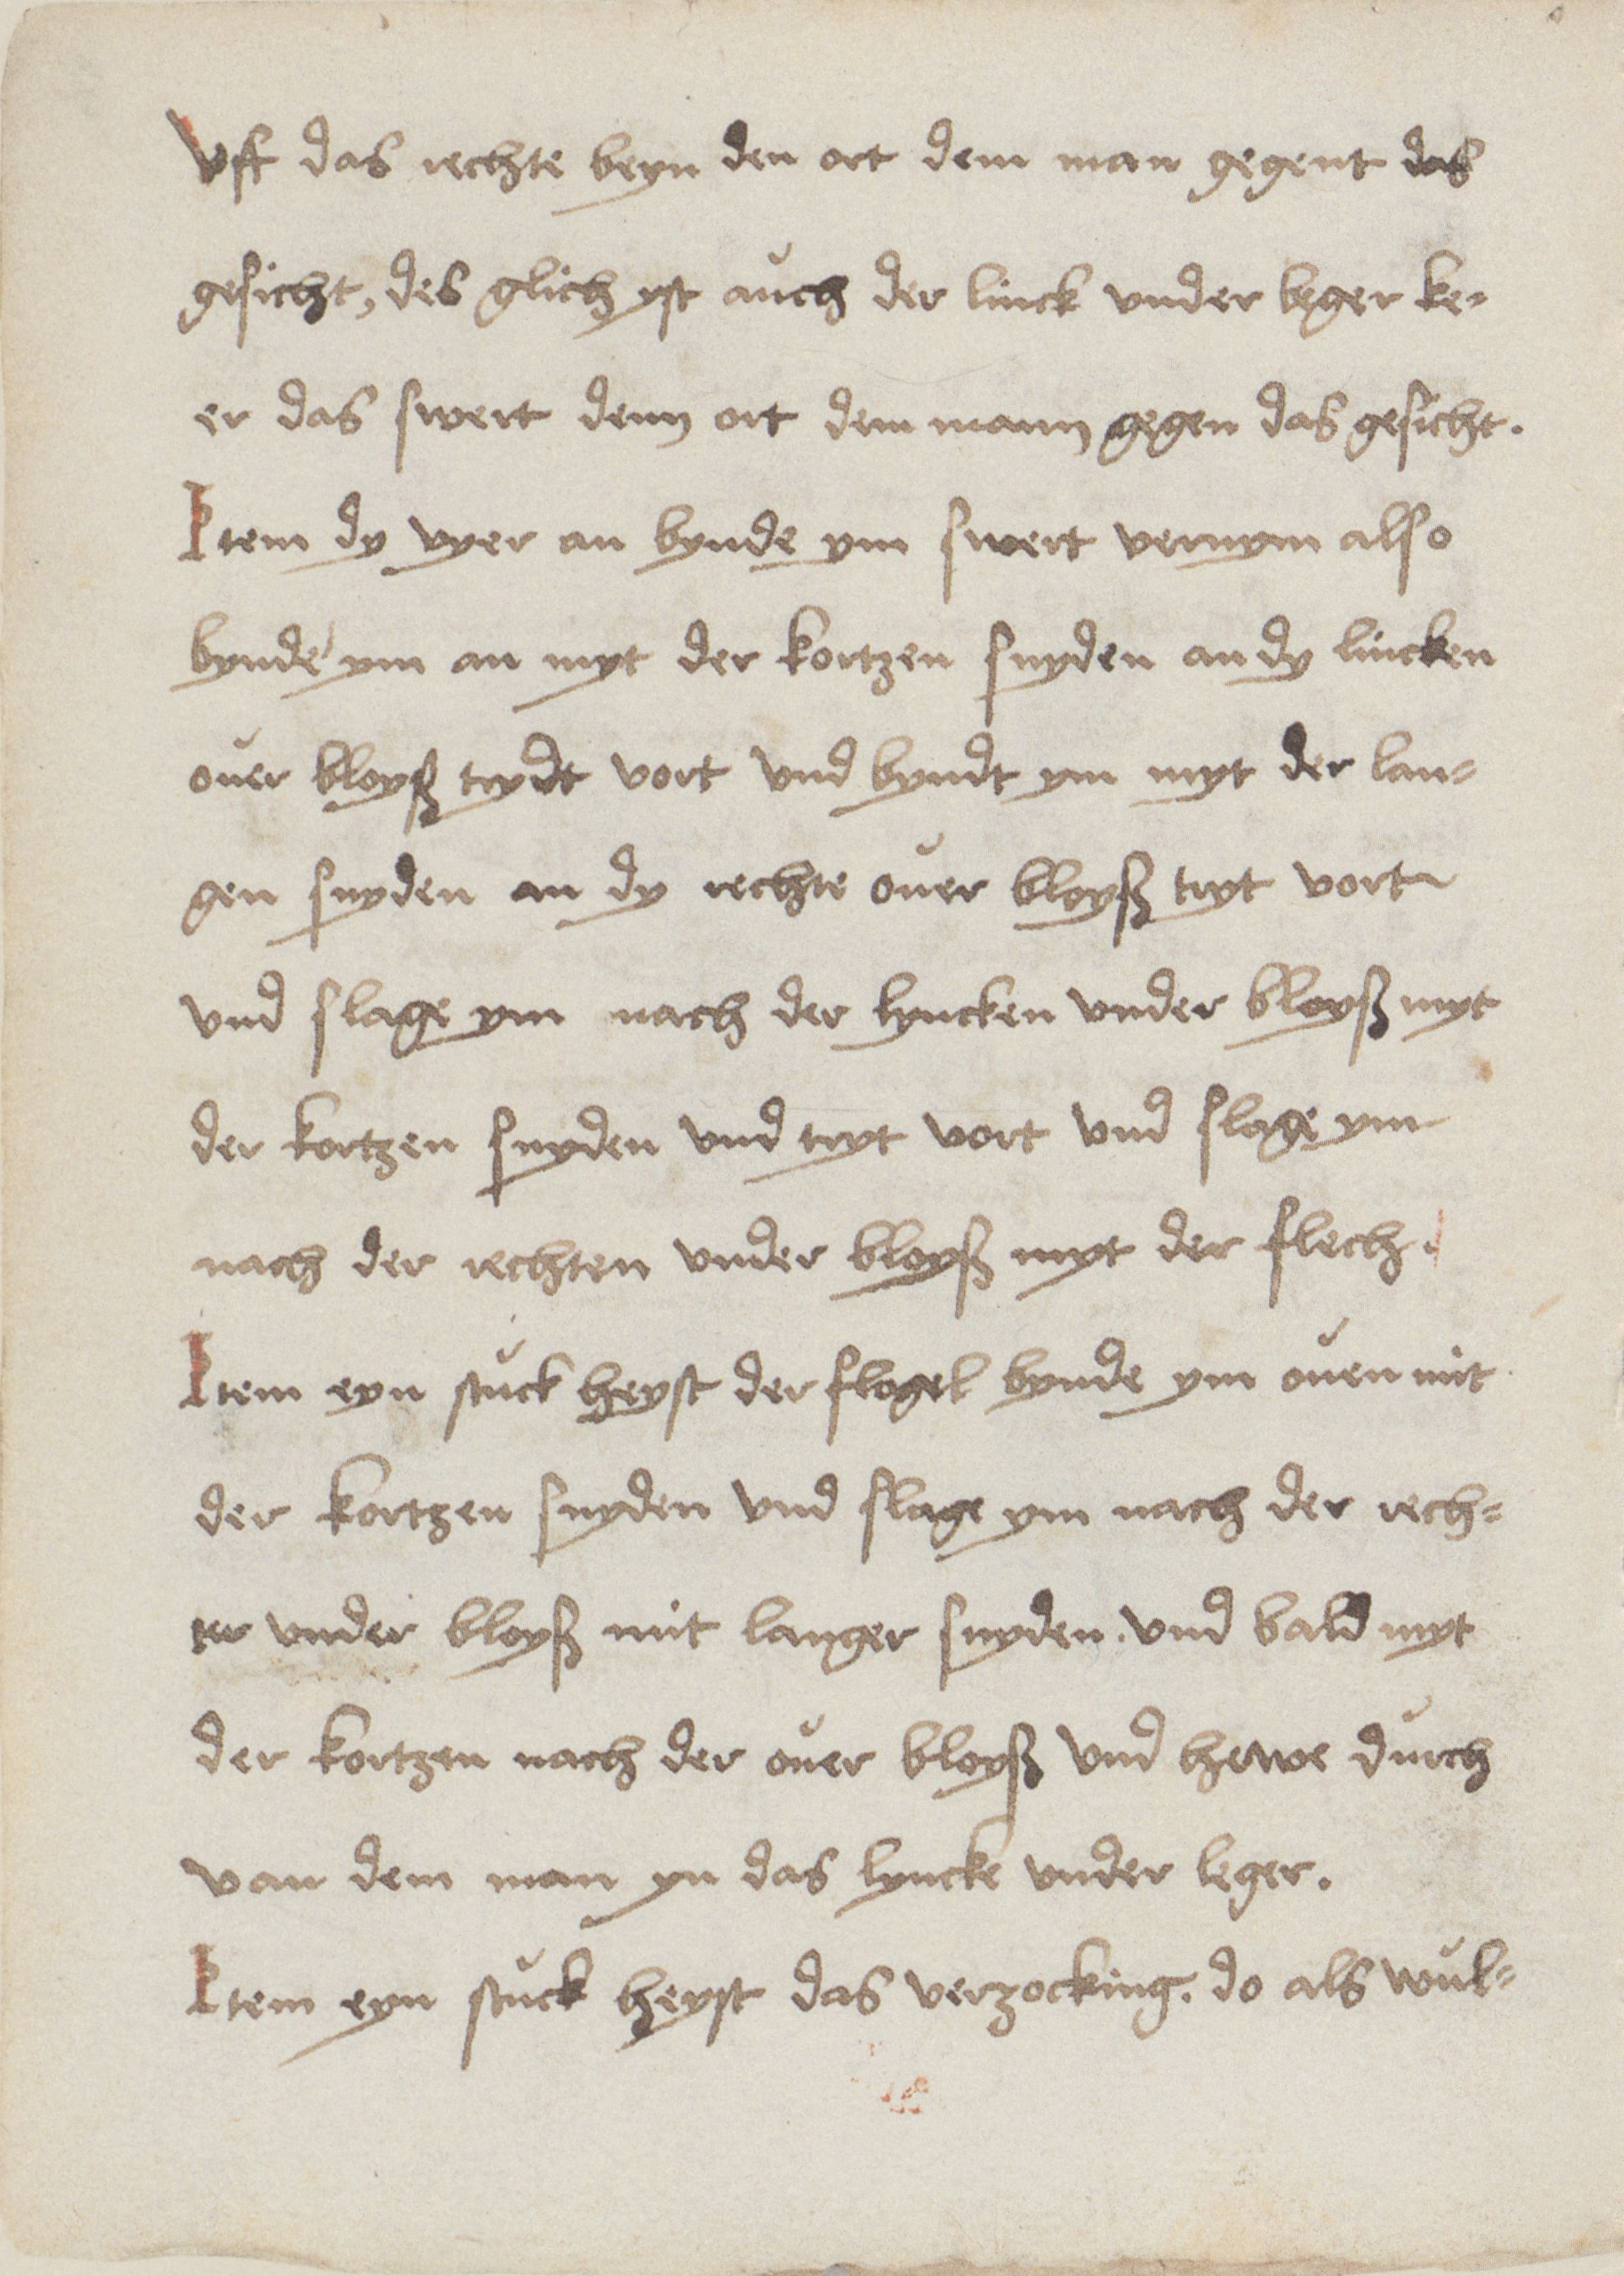 Vff das rechte beyn den ort dem man gegent das
gesicht, des glich yst auch der linck vnder leger ke-
er das swert denn ort dem mann gegen das gesicht.
Item dy vyer an bynde ym swert vernym also
bynde ym an myt der kortzen snyden an dy lincken
ouer bloyß trydt vort vnd byndt ym myt der lan-
gen snyden an dy rechte ouer bloyß tryt vort
vnd slage ym nach der lyncken vnder bloyß myt
der kortzen snyden vnd tryt vort vnd slage ym
nach der rechten vnder bloyß myt der flech.
Item eyn stuck heyst der flogel bynde ym ouen mit
der kortzen snyden vnd slage ym nach der rech-
ter vnder bloyß mit langer snyden. vnd bald myt
der kortzen nach der ouer bloyß vnd hewe durch
van dem man yn das lyncke vnder leger.
Item eyn stuck heyst das verzocking. do als wul-